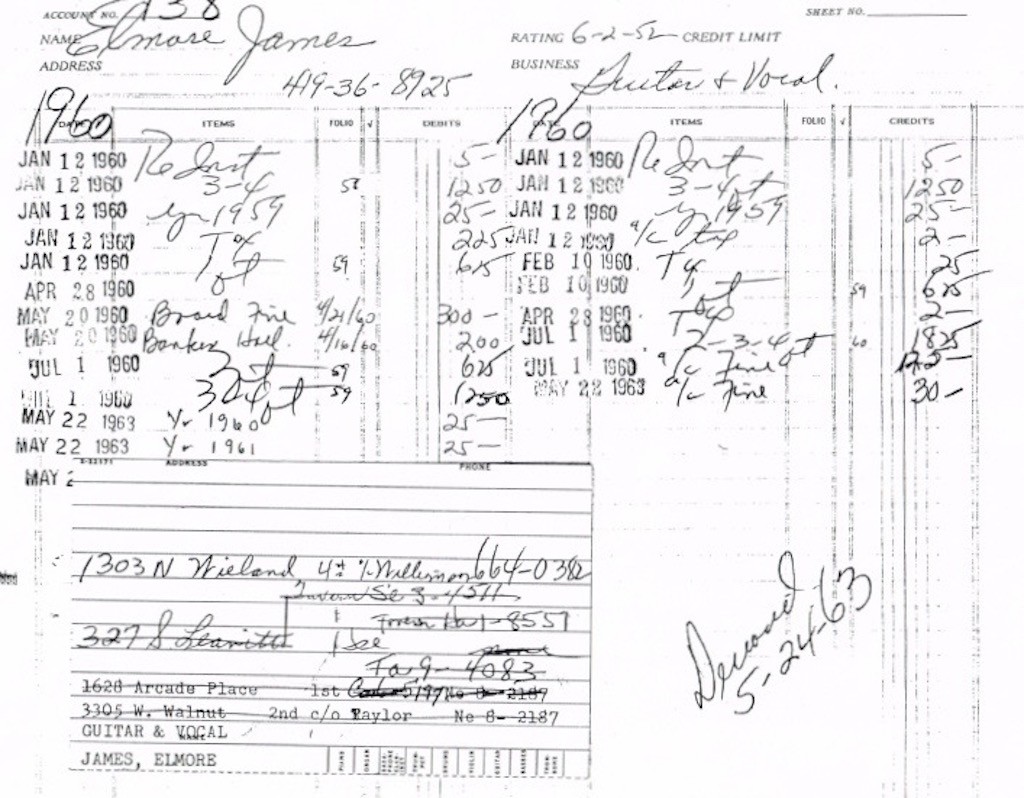 ACCOUNT NO. 138 SHEET NO.
NAME Elmore James RATING 6-2-52 CREDIT LIMIT
ADDRESS BUSINESS Guitar & Vocal.
419-36-8925
1960 1960
DATE ITEMS FOLIO √ DEBITS DATE ITEMS FOLIO √ CREDITS
JAN 12 1960 Re Inst 5- JAN 12 1960 Re Inst 5-
JAN 12 1960 3-4 58 1250 JAN 12 1960 3-4 qt 1250
JAN 12 1960 yr 1959 25- JAN 12 1960 yr 1959 25-
JAN 12 1960 Tax 225 JAN 12 1960 a/c tax 2-
JAN 12 1960 1 qt 59 625 FEB 10 1960 Tax 25
APR 28 1960 FEB 10 1960 1 qt 59 625
MAY 20 1960 Board Fine 4/21/60 300- APR 28 1960 Tax 2-
MAY 20 1960 Bankers Hall 4/16/60 200 JUL 1 1960 2-3-4 qt 60 1825
JUL 1 1960 2 qt 59 625 JUL 1 1960 a/c Fine
JUL 1 1960 3 & 4 qt 59 1250 MAY 22 1963 a/c Fine 30-
MAY 22 1963 Yr 1960 25-
MAY 22 1963 Yr 1961 25-
MAY 2
ADDRESS PHONE
1303 N Wieland 4th % Williamson 664-0382
3-4511
1-8551
327 S Leavitt
Fa 9-4083
1628 Arcade Place 1st Ne 8-2187
3305 W. Walnut 2nd c/o Taylor Ne 8-2187
GUITAR & VOCAL
NAME
JAMES, ELMORE PIANO ORGAN DRUMS VIOLIN GUITAR
Deceased
5-24-63